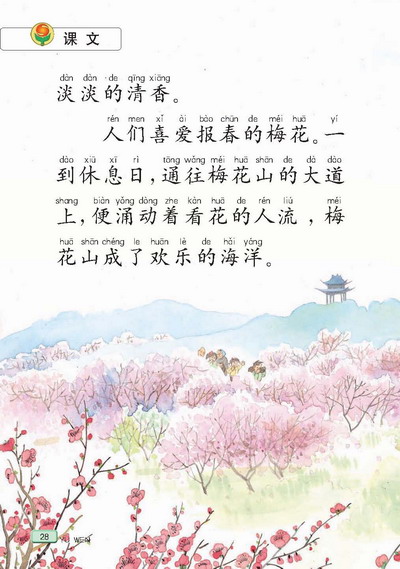 课文
dàn dàn de qīng xiāng
淡淡的清香。
rén men xǐ ài bào chūn de méi huā yí
人们喜爱报春的梅花。一
dào xiū xī rì tōng wǎng méi huā shān de dà dào
到休息日，通往梅花山的大道
shang biàn yǒng dòng zhe kàn huā de rén liú méi
上，便涌动着看花的人流，梅
huā shān chéng le huān lè de hǎi yáng
花山成了欢乐的海洋。
28 YU WEN